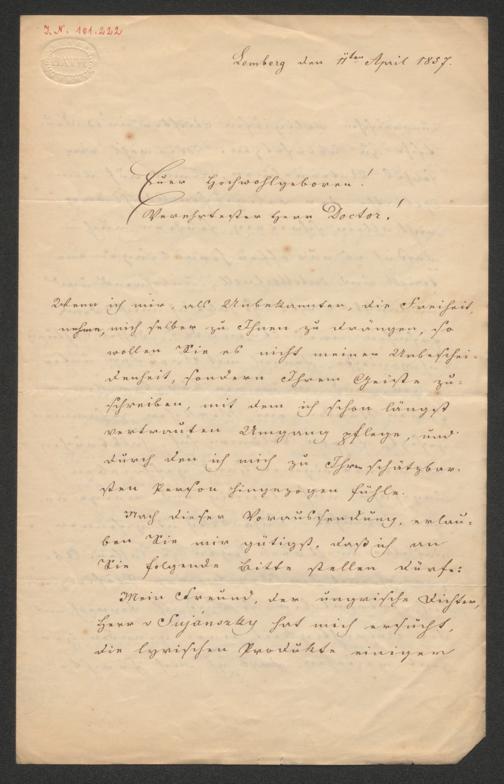 I. N. 101.222
BATH
Lemberg den 11ten April 1857.
Euer Hochwohlgeboren!
Verehrtester Herr Doctor!
Wenn ich mir, als Unbekannten, die Freiheit
nehme, mich selber zu Ihnen zu drängen, so
wollen Sie es nicht meiner Unbeschei-
denheit, sondern Ihrem Geiste zu-
schreiben, mit dem ich schon längst
vertrauten Umgang pflege, und
durch den ich mich zu Ihrer schätzbar-
sten Person hingezogen fühle.
Nach dieser Voraussendung, erlau-
ben Sie mir gütigst, daß ich an
Sie folgende Bitte stellen dürfe:
Mein Freund, der ungrische Dichter,
Herr v Sujánszky hat mich ersucht,
die lyrischen Produkte einigem